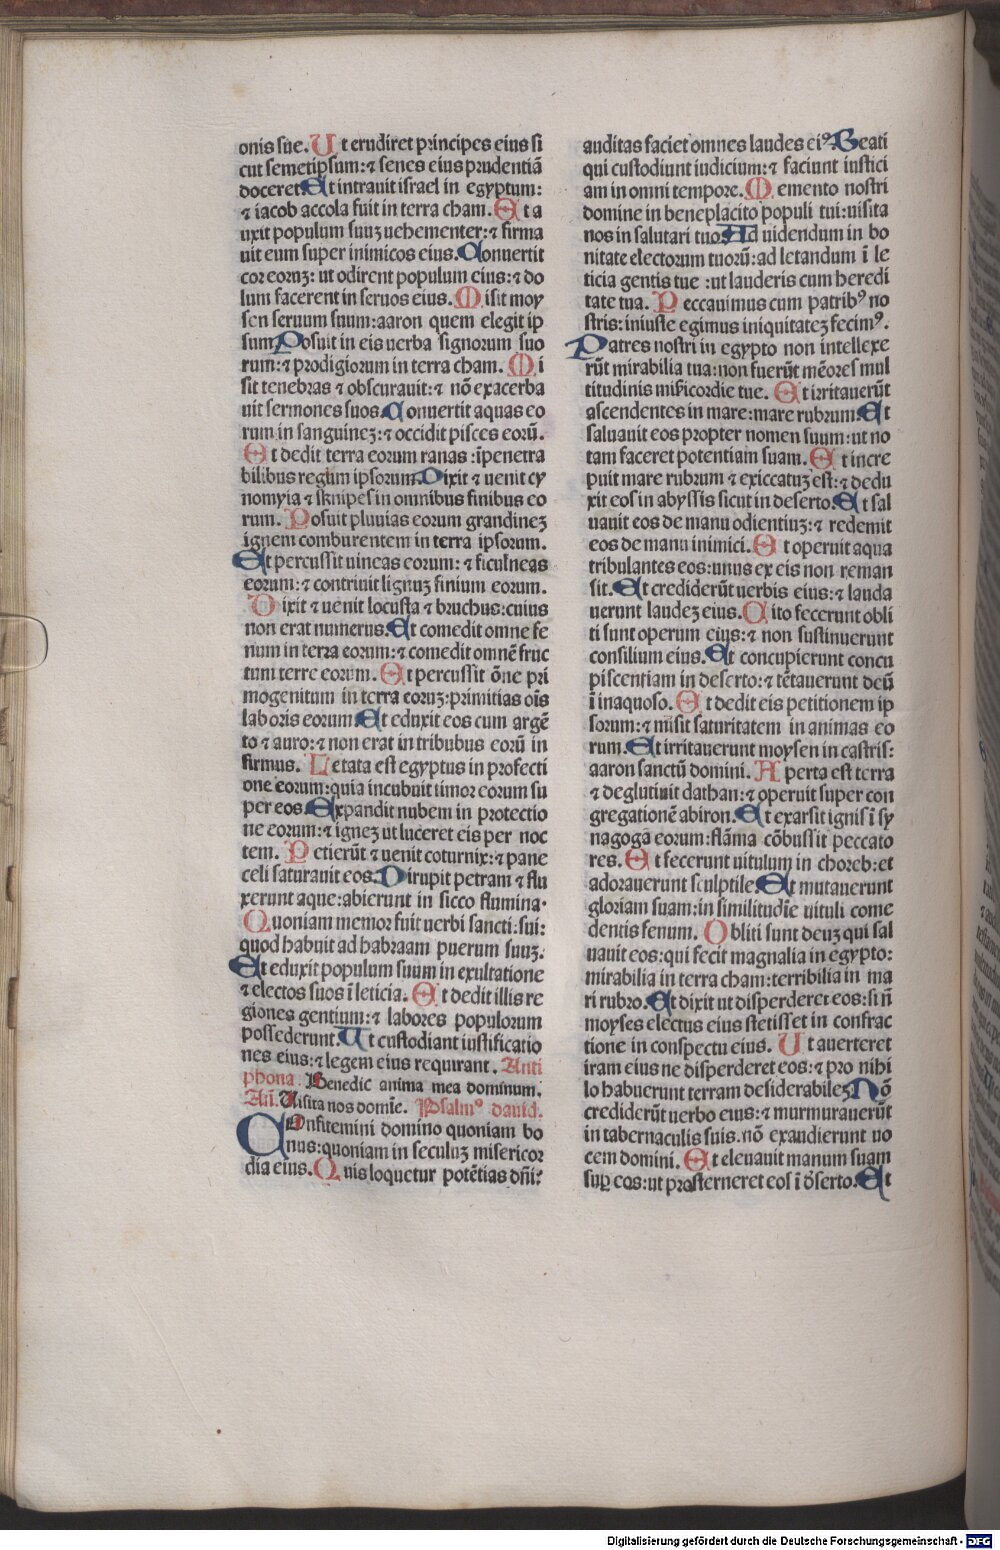 onis sue. Ut erudiret principes eius si
cut semetipsum: ⁊ senes eius prudentiā
doceret. Et intrauit israel in egyptum:
⁊ iacob accola fuit in terra cham. Et a
uxit populum suuꝫ uehementer: ⁊ firma
uit eum super inimicos eius. Conuertit
cor eoruꝫ: ut odirent populum eius: ⁊ do
lum facerent in seruos eius. Misit moy
sen seruum suum: aaron quem elegit ip
sum. Posuit in eis uerba signorum suo
rum: ⁊ prodigiorum in terra cham. Mi
sit tenebras ⁊ obscurauit: ⁊ nō exacerba
uit sermones suos. Conuertit aquas eo
rum in sanguineꝫ: ⁊ occidit pisces eorū.
Et dedit terra eorum ranas: īpenetra
bilibus regum ipsorum. Dixit ⁊ uenit cy
nomyia ⁊ sknipes in omnibus finibus eo
rum. Posuit pluuias eorum grandineꝫ
ignem comburentem in terra ipsorum.
Et percussit uineas eorum: ⁊ ficulneas
eorum: ⁊ contriuit lignuꝫ finium eorum.
Dixit ⁊ uenit locusta ⁊ bruchus: cuius
non erat numerus. Et comedit omne fe
num in terra eorum: ⁊ comedit omnē fruc
tum terre eorum. Et percussit ōne pri
mogenitum in terra eoruꝫ: primitias oīs
laboris eorum. Et eduxit eos cum argē
to ⁊ auro: ⁊ non erat in tribubus eorū in
firmus. Letata est egyptus in profecti
one eorum: quia incubuit timor eorum su
per eos. Expandit nubem in protectio
ne eorum: ⁊ igneꝫ ut luceret eis per noc
tem. Petierūt ⁊ uenit coturnix: ⁊ pane
celi saturauit eos. Dirupit petram ⁊ flu
xerunt aque: abierunt in sicco flumina.
Quoniam memor fuit uerbi sancti: sui:
quod habuit ad habraam puerum suuꝫ.
Et eduxit populum suum in exultatione
⁊ electos suos ī leticia. Et dedit illis re
giones gentium: ⁊ labores populorum
possederunt. Ut custodiant iustificatio
nes eius: ⁊ legem eius requirant. Anti
phona. Benedic anima mea dominum.
Añ. Uisita nos domīe. Psalmꝰ dauid.
COnfitemini domino quoniam bo
nus: quoniam in seculuꝫ misericor
dia eius. Quis loquetur potētias dñi:
auditas faciet omnes laudes eiꝰ. Beati
qui custodiunt iudicium: ⁊ faciunt iustici
am in omni tempore. Memento nostri
domine in beneplacito populi tui: uisita
nos in salutari tuo. Ad uidendum in bo
nitate electorum tuorū: ad letandum ī le
ticia gentis tue: ut lauderis cum heredi
tate tua. Peccauimus cum patribꝰ no
stris: iniuste egimus iniquitateꝫ fecimꝰ.
Patres nostri in egypto non intellexe
rūt mirabilia tua: non fuerūt mēores mul
titudinis mīsericordie tue. Et irritauerūt
ascendentes in mare: mare rubrum. Et
saluauit eos propter nomen suum: ut no
tam faceret potentiam suam. Et incre
puit mare rubrum ⁊ exiccatuꝫ est: ⁊ dedu
xit eos in abyssis sicut in deserto. Et sal
uauit eos de manu odientiuꝫ: ⁊ redemit
eos de manu inimici. Et operuit aqua
tribulantes eos: unus ex eis non reman
sit. Et crediderūt uerbis eius: ⁊ lauda
uerunt laudeꝫ eius. Cito fecerunt obli
ti sunt operum eius: ⁊ non sustinuerunt
consilium eius. Et concupierunt concu
piscentiam in deserto: ⁊ tētauerunt deū
ī inaquoso. Et dedit eis petitionem ip
sorum: ⁊ misit saturitatem in animas eo
rum. Et irritauerunt moysen in castris:
aaron sanctū domini. Aperta est terra
⁊ deglutiuit dathan: ⁊ operuit super con
gregationē abiron. Et exarsit ignis ī sy
nagoga eorum: flāma cōbussit peccato
res. Et fecerunt uitulum in choreb: et
adorauerunt sculptile. Et mutauerunt
gloriam suam: in similitudīe uituli come
dentis fenum. Obliti sunt deuꝫ qui sal
uauit eos: qui fecit magnalia in egypto:
mirabilia in terra cham: terribilia in ma
ri rubro. Et dixit ut disperderet eos: si ñ
moyses electus eius stetisset in confrac
tione in conspectu eius. Ut auerteret
iram eius ne disperderet eos: ⁊ pro nihi
lo habuerunt terram desiderabileꝫ. Nō
crediderūt uerbo eius: ⁊ murmurauerūt
in tabernaculis suis. nō exaudierunt uo
cem domini. Et eleuauit manum suam
suꝑ eos: ut prosterneret eos ī d̄serto. Et
Digitalisierung gefördert durch die Deutsche Forschungsgemeinschaft - DFG